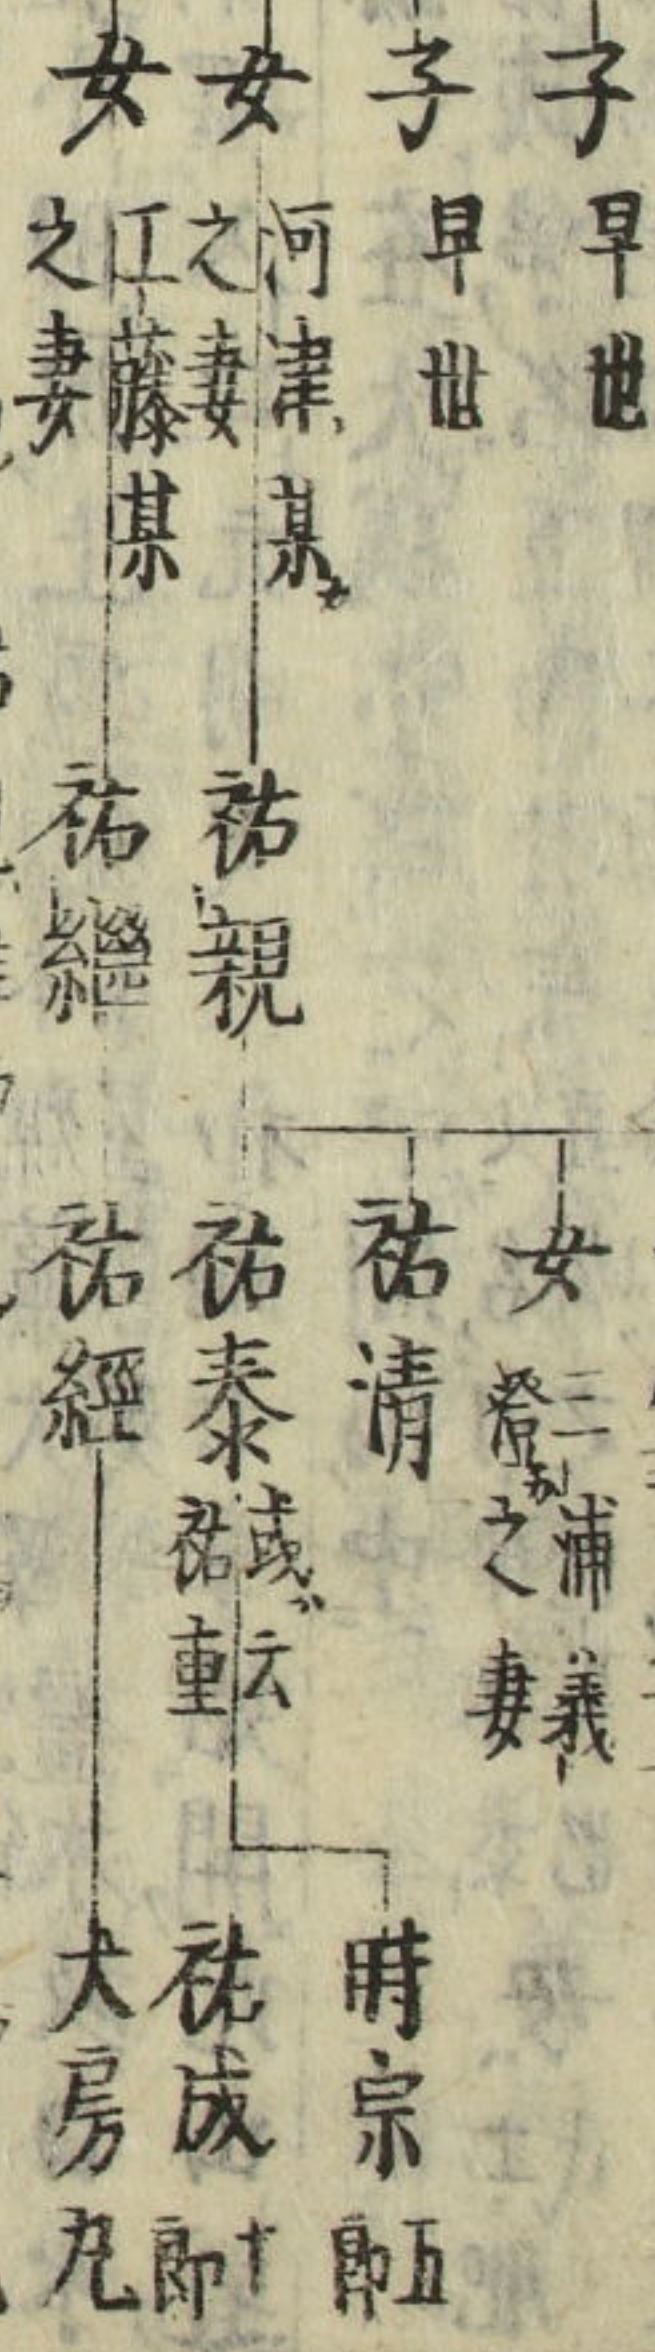 子 早世
子 早世
女 河津某
之妻
女 工藤某
之妻
祐親
祐繼
女 三浦義
澄之妻
祐清
祐泰 或云
祐重
祐經
時宗 五
郎
祐成 十
郎
犬房丸